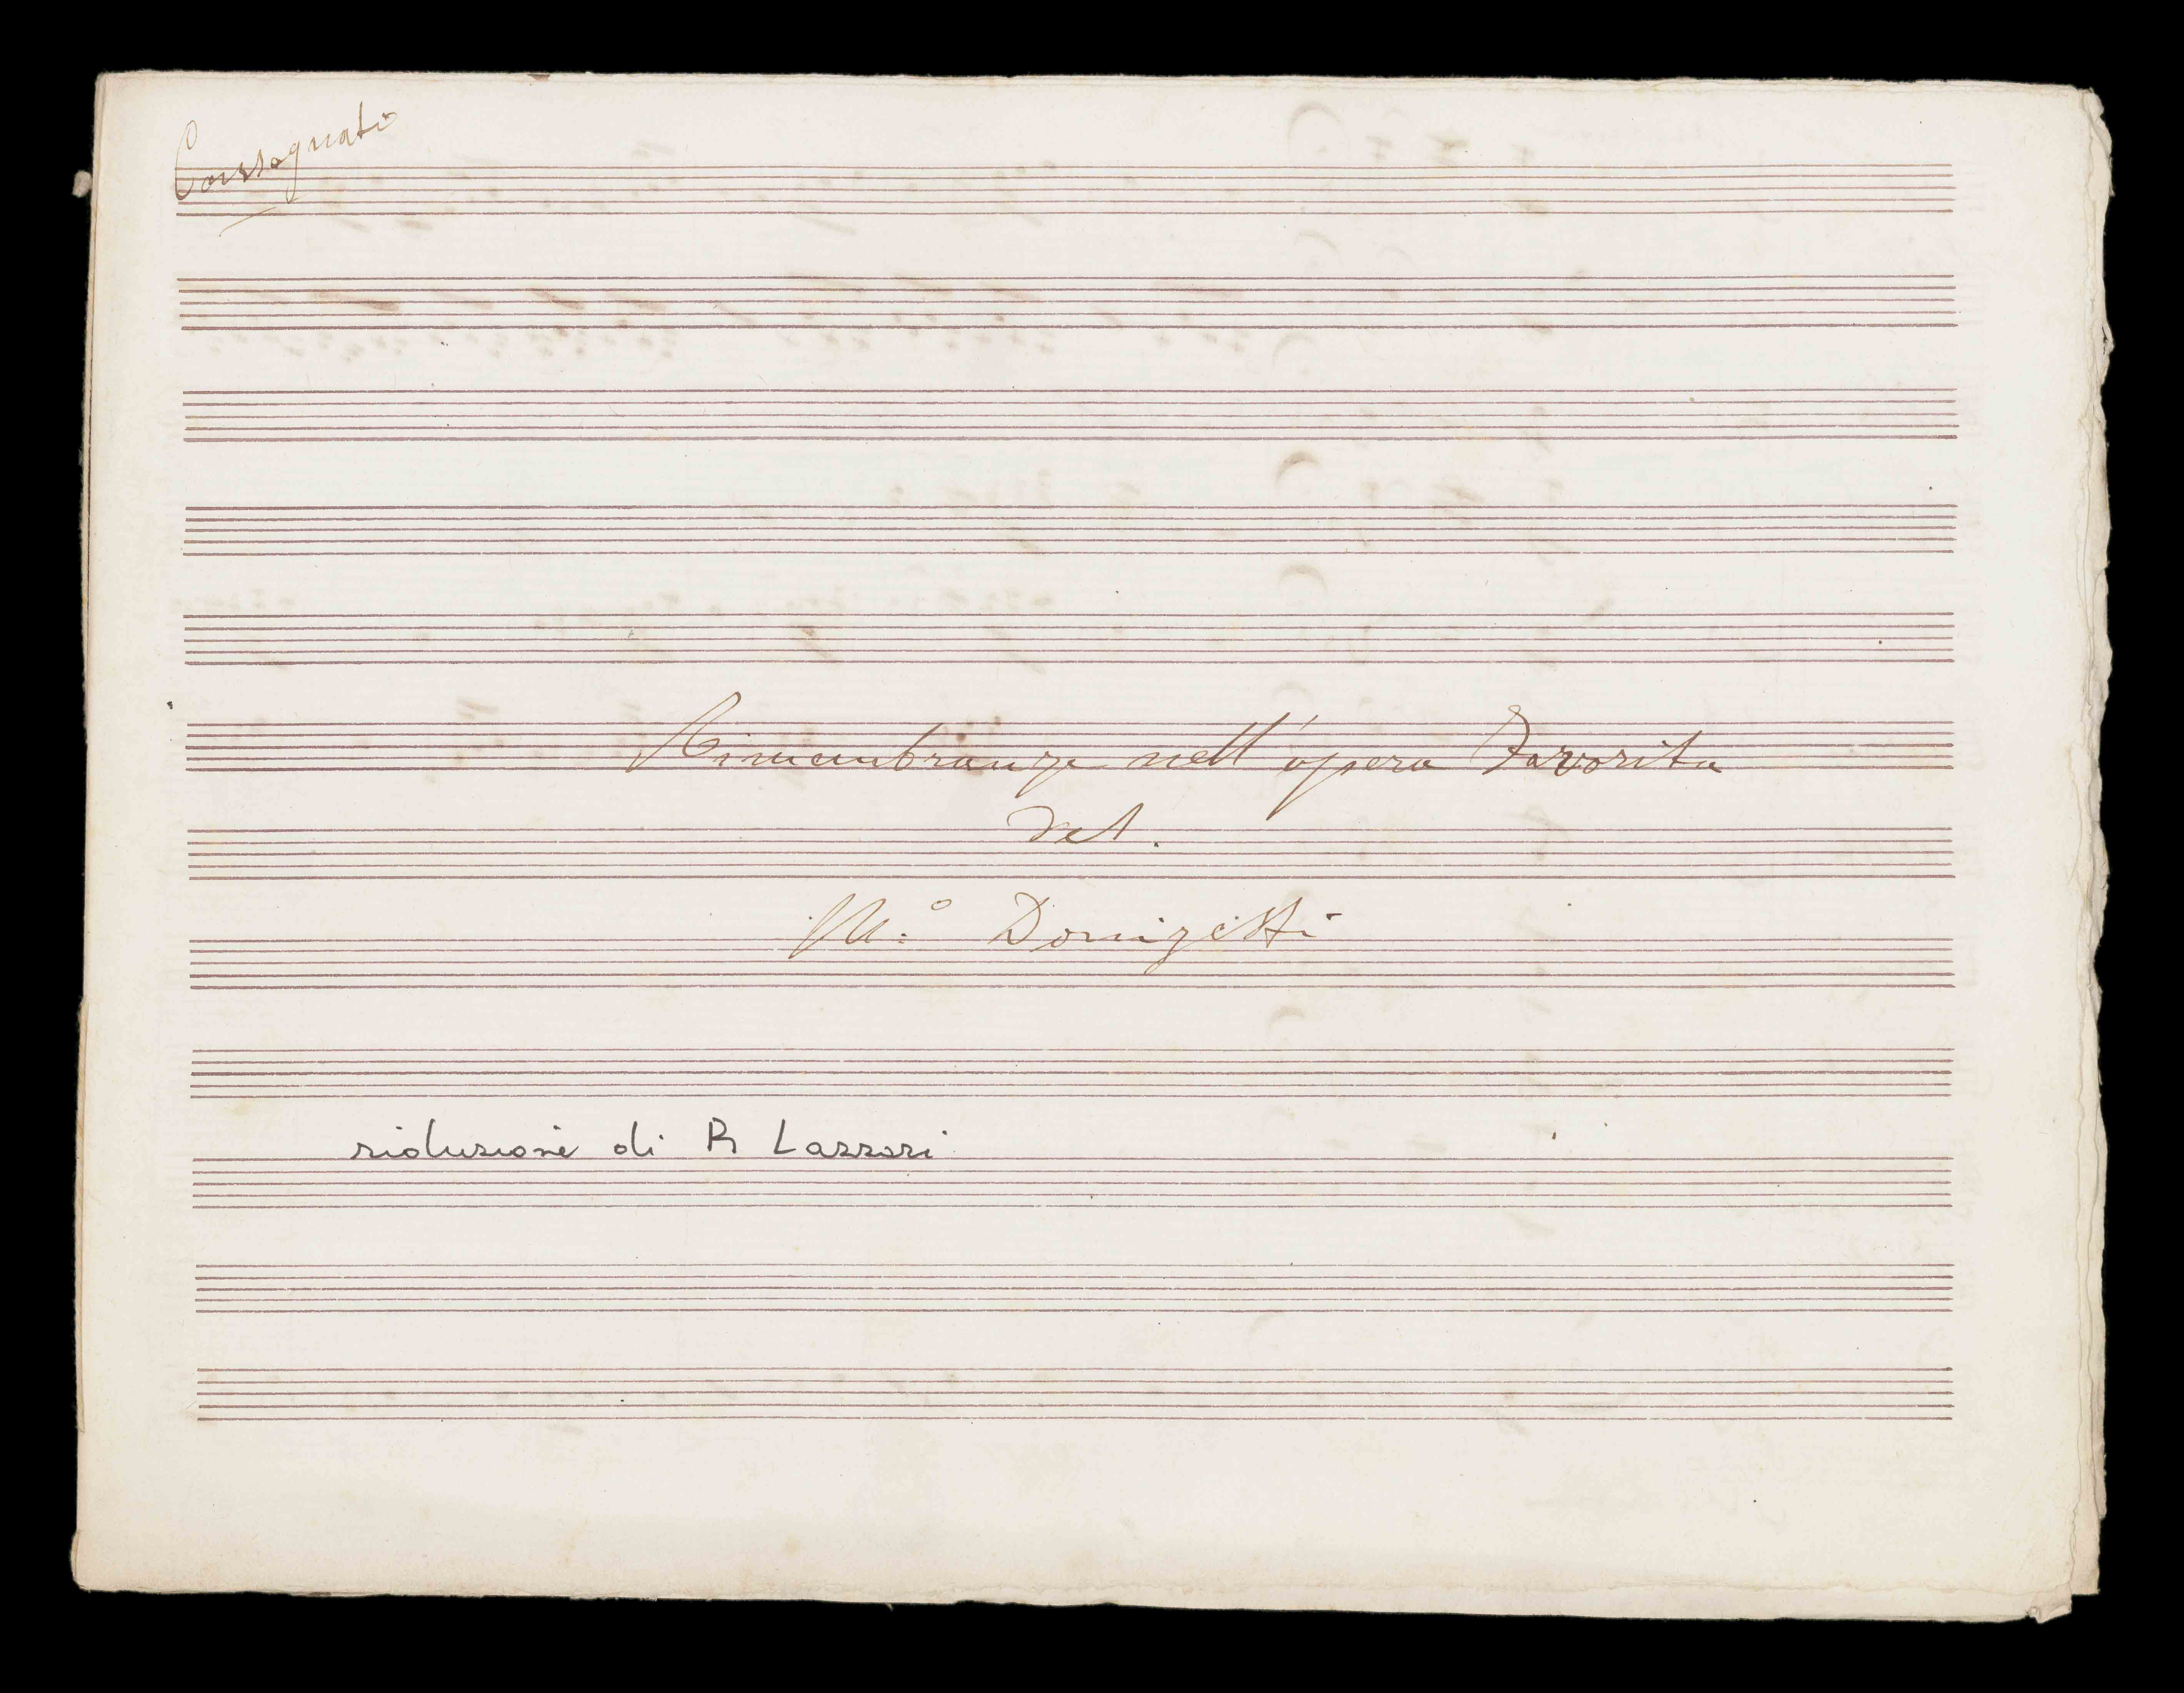 Consegnato
Rimembranze nell'opera Favorita
del.
M.° Donizetti
riduzione di R Lazzari